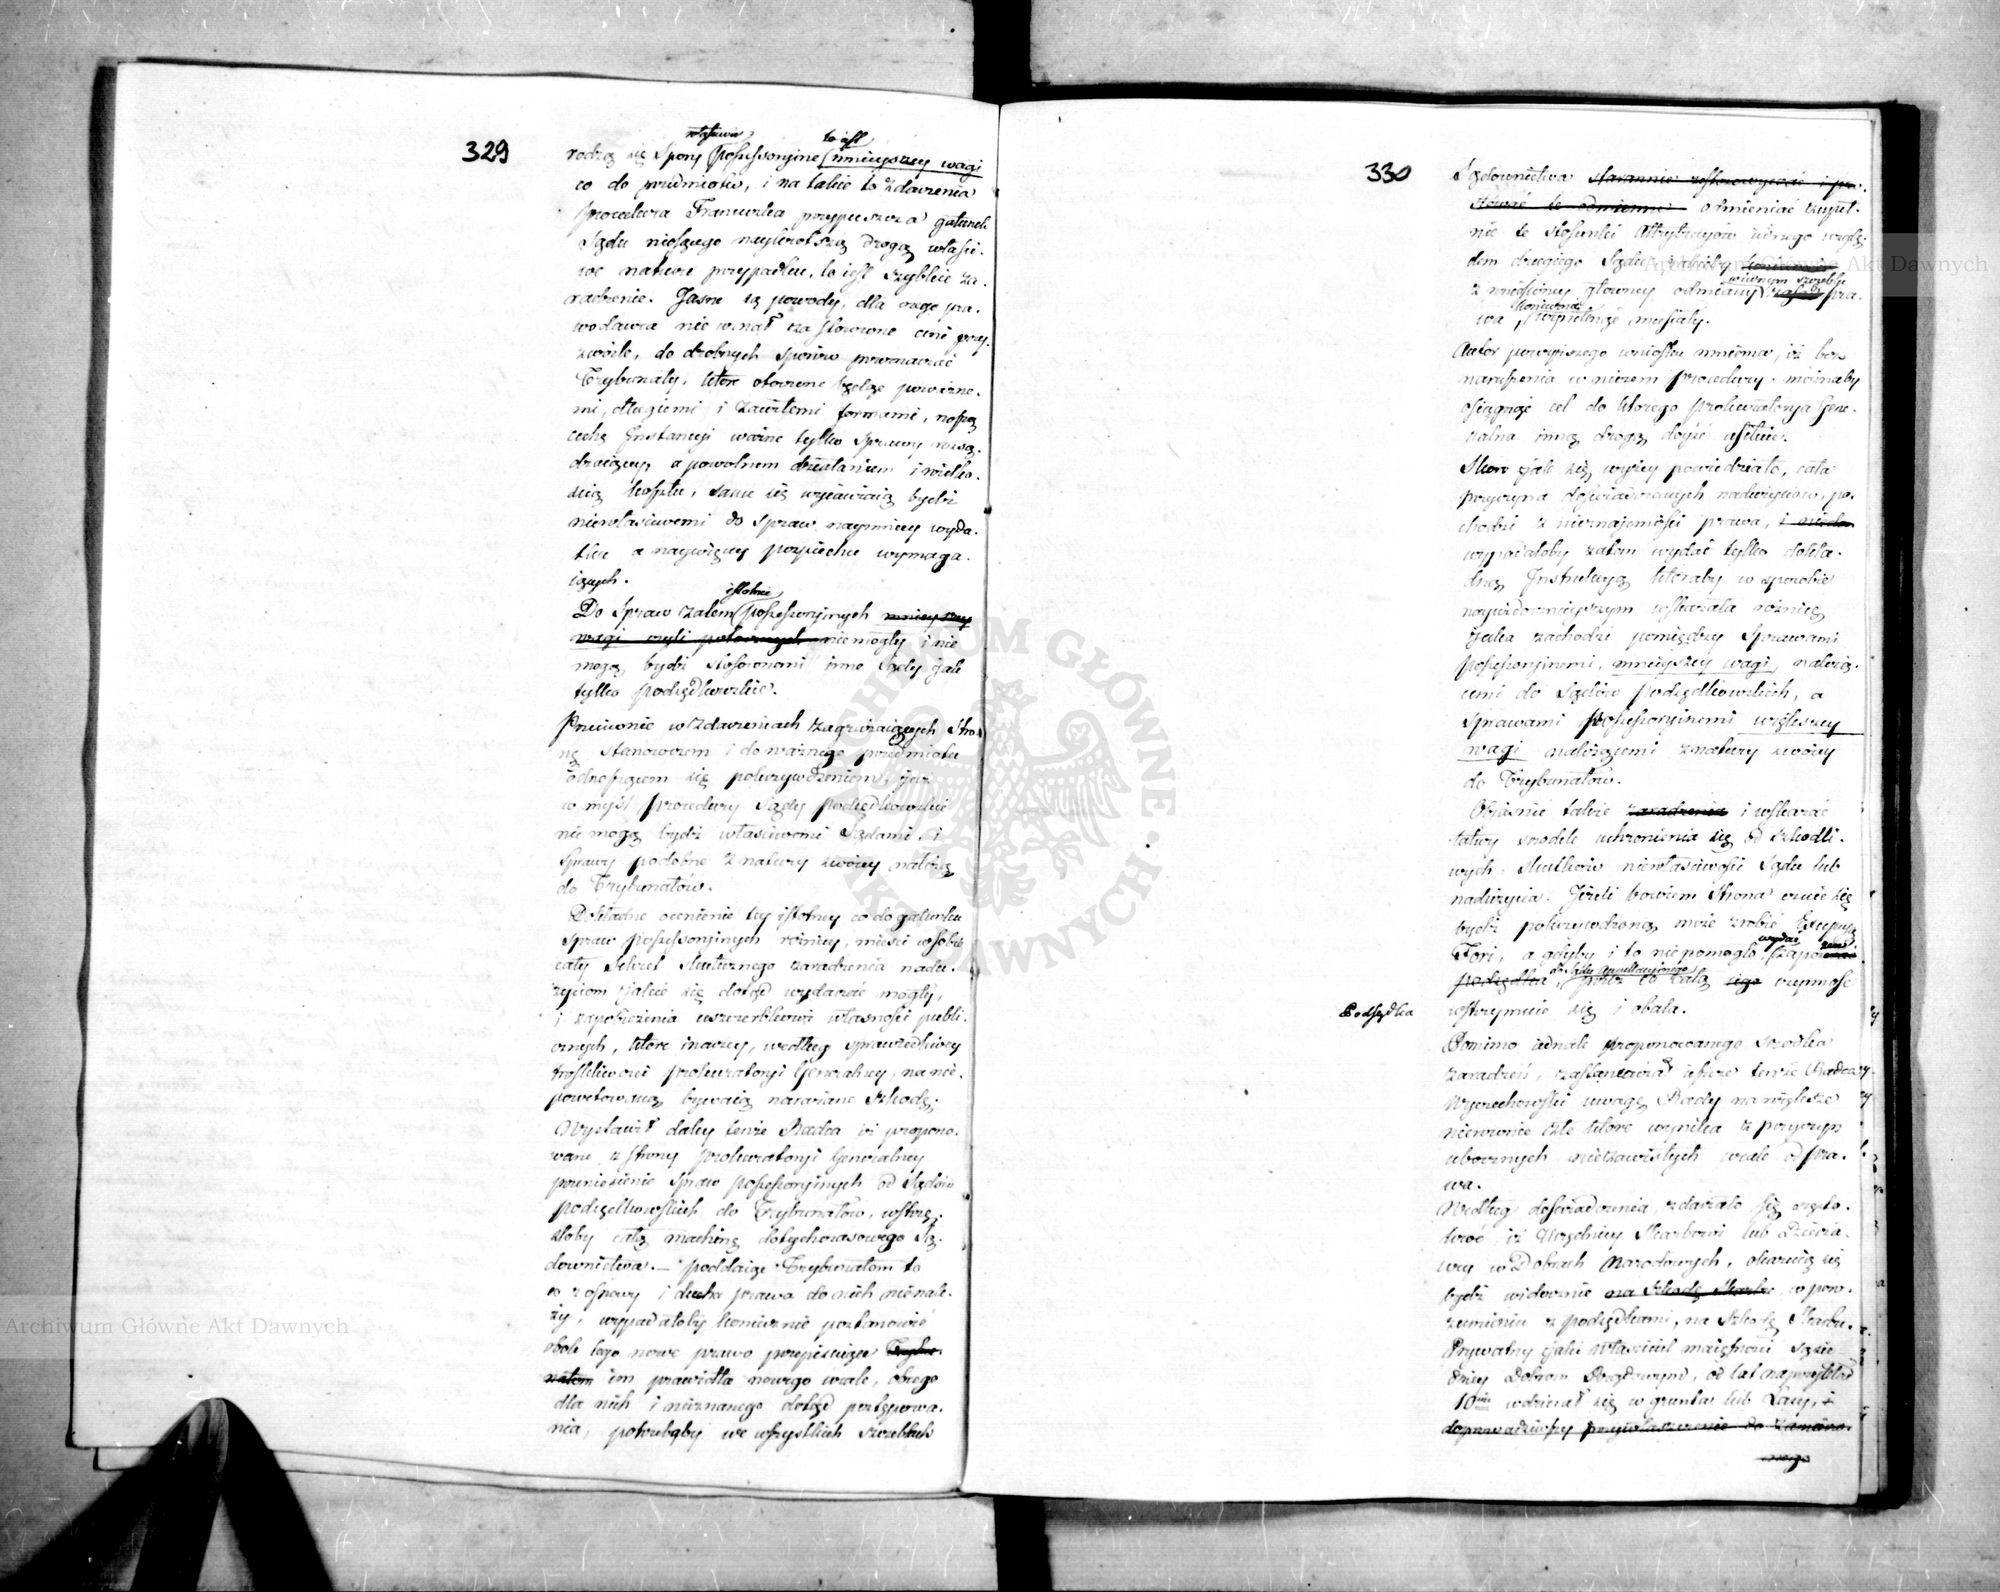 329
właściwie to jest
rodzą się Spory possessoryine mnieyszey wagi
co do przedmiotów, i na takie to zdarzenia
procedura Francuzka przypuszcza gatunek
Sądu niosącego naykrotszą drogą właści-
we naturze przypadku, to iest szybkie za-
radzenie. Jasne są powody, dla czego pra-
wodawca nie uznał za stosowne ani przy-
zwoite, do drobnych sporów przeznaczać
Trybunały, które otoczone będąc poważne-
mi, długiemi i zawiłemi formami, noszą
cechę Instancyi ważne tylko Sprawy rozsą-
dzaiącey, a powolnem działaniem i wielko-
ścią kosztu, same się wyiawiaią bydź
niewłaściwemi do spraw naymniey wyda-
tków a naywięcey pospiechu wymaga-
iących.
istotnie
Do Spraw zatem possessoryinych mnieyszey
wagi czyli potocznych nie mogły i nie
mogą bydź stosownemi inne Sądy jak
tylko podsędkowskie.
Przeciwnie w zdarzeniach zagrażaiących Stro-
nę stanowczem i do ważnego przedmiotu
odnoszącem się pokrzywdzeniem, już
w myśl procedury Sądy podsędkowskie
nie mogą bydź właściwemi Sądami, i
Sprawy podobne z natury swoiey należą
do Trybunałów.
Dokładne ocenienie tey istotney co do gatunku
Spraw possessoryinych różnicy, mieści w sobie
cały sekret skutecznego zaradzenia nadu-
życiom jakie się dotąd wydarzać mogły,
i zapobieżenia uszczerbkowi własności publi-
cznych, które inaczey, według sprawiedliwey
troskliwości prokuratoryi Generalney, na nie-
powetowaną bywaią narażane szkodę.
Wystawił daley tenże Radca iż propono-
wane z strony prokuratoryi Generalney
przeniesienie Spraw possessoryinych od Sądów
podsędkowskich do Trybunałów, wstrzą-
słoby całą machinę dotychczasowego Są-
downictwa. — poddaiąc Trybunałom to
co z osnowy i ducha prawa do nich nienale-
ży, wypadałoby koniecznie postanowić
obok tego nowe prawo przepisuiące Trybu-
nałom im prawidła nowego wcale, obcego
dla nich i nieznanego dotąd postępowa-
nia, potrzebaby we wszystkich szczeblach
330
Sądownictwa starannie zastosowywać i pro-
stować te odmienne odmieniać zupeł-
nie te stosunki Attrybucyów iednego wzglę-
dem drugiego Sądu, iakieby koniecznie
z wniesioney główney odmiany w iednym szczeblu zasad pra-
wa, koniecznie wyniknąć musiały.
Autor powyższego wniosku mniema, iż bez
naruszenia w niczem procedury, możnaby
osiągnąć cel do którego prokuratorya Gene-
ralna inną drogą doyść usiłuie.
Skoro jak się wyżey powiedziało, cała
przyczyna doświadczonych nadużyciów, po-
chodzi z nieznajomości prawa,
wypadałoby zatem wydać tylko dokła-
dną Instrukcyą któraby w sposobie
naywidoczniejszym wskazała różnicę
jaka zachodzi pomiędzy Sprawami
possessoryinemi, mnieyszey wagi, należą-
cemi do Sądów podsędkowskich, a
Sprawami possessoryinemi większey
wagi należącemi z natury swoiey
do Trybunałów.
Obiaśnić także zaradzenia i wskazać
łatwy srodek uchronienia się od szkodli-
wych skutków niewłaściwości Sądu lub
nadużycia. Jeżeli bowiem Strona czuie się
bydź pokrzywdzoną może zrobić Excepcyą
Fori, a gdyby i to nie pomogło wydać zapozew
podsędka, do Sądu Appellacyinego przez to całą iego czynność
Podsędka
wstrzymuie się i obala.
Pomimo iednak proponowanego srodka
zaradzeń, zastanawiał ieszcze tenże Radca
Wyczechowski uwagę Rady na większe
nierównie złe które wynika z przyczyn
ubocznych niezawisłych wcale od pra-
wa.
Według doświadczenia, zdarzało się często-
kroć, iż Urzędnicy Skarbowi lub Dzierża-
wcy w Dobrach Narodowych, okazuią się
bydź widocznie na Szkodę Skarbu, w poro-
zumieniu z podsędkami, na szkodę Skarbu.
Prywatny jaki właściciel maiętności sąsie-
dniey Dobrom Rządowym, od lat naprzykład
10ciu wdzierał się w grunta lub Lasy, i
doprowadziwszy przywłaszczenie do